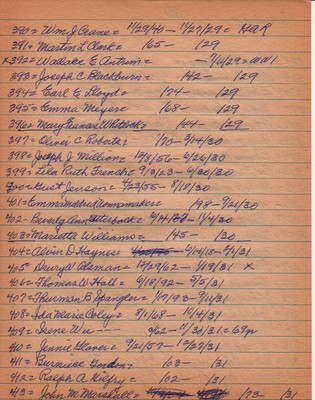 390 = Wm J Crane = 11/29/40 - 11/27/29 = H&R
391 = Martin L Clark = 165 - 129
x392 = Wallace E Antrim = - 7/6/29 = WW1
393 = Joseph C Blackburn = 142 - 129
394 = Earl E Lloyd = 174 - 129
395 = Emma Meyer = 168 - 129
396 = Mary Whitlock = 144 - 129
397 = Oliver C Roberts = 170 - 3/14/30
398 = Joseph J Million = 12/8/56 - 4/26/30
399 = Lela Ruth French = 9/3/23 - 4/30/30
400 = Gust Jenson = 4/23/55 - 8/18/30
401 = Emma = 198 - 9/21/30
402 - Beverly Ann - 11/4/30
403 = Marietta Williams = 145 - 130
404 = Alvin D Haynes = 6/14/18 - 5/1/31
405 = Alsman = 12/29/62 - 1/19/31 x
406 = Thomas W Hall = 6/18/92 - 5/5/31
407 = Thurman B Spangler = 1/17/93 - 9/11/31
408 = Ida Marie Coley = 8/1/68 - 10/4/31
409 = Irene 9/62 - 11/30/31 = 69y
410 = Jennie Glover = 9/21/57 - 12/27/31
411 = Burniece Gordon = 103 - 131
412 = Ralph A = 102 - 131
413 = John M Marshall = 173 - 131